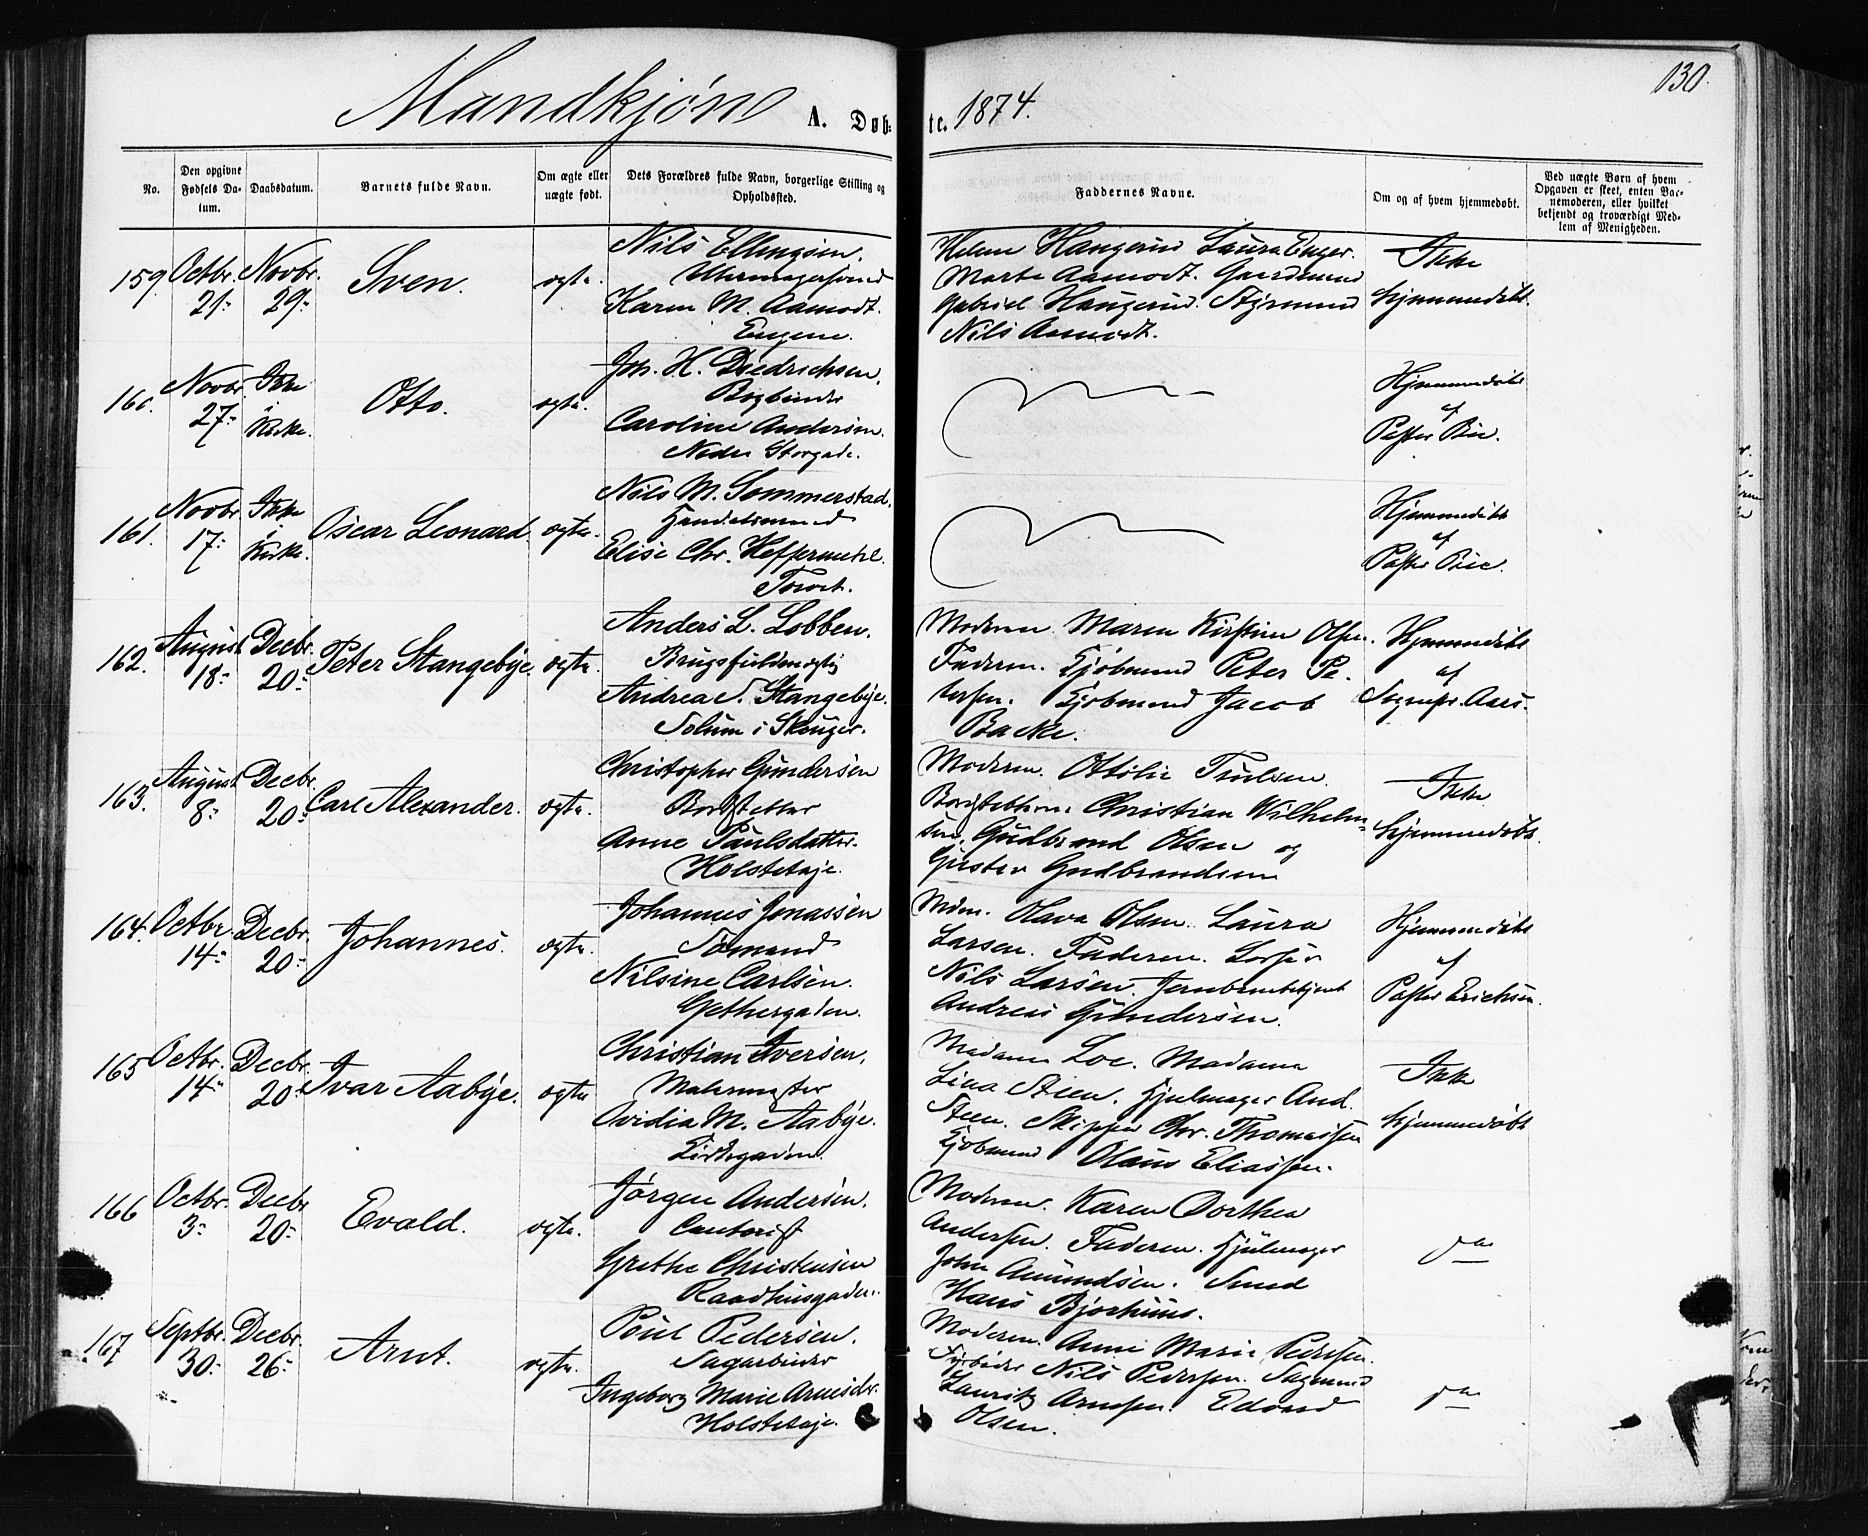 Mandkjøn A. Døbte. 1874.
130.
No.
Den opgivne Fødsels Datum.
Daabsdatum.
Barnets fulde Navn.
Om ægte eller uægte født.
Dets Forældres fulde Navn, borgerlige Stilling og Opholdssted.
Faddernes Navne.
Om og af hvem hjemmedøbt.
Ved uægte Børn af hvem Opgaven er skeet, enten Barnemoderen, eller hvilket bekjendt og troværdigt Medlem af Menigheden.
159. Octbr. 21. Novbr. 29. Sven. ægte.
Nils Ellingsen.
Uhrmagersvend
Karen M. Aamodt.
Engene.
Helene Haugerud Laura Enger.
Marte Aamodt. Gaardmand
Gabriel Haugerud. Styrmand
Nils Aamodt.
Ikke
hjemmedøbt.
160. Novbr. 27. Ikke i Kirke. Otto. ægte.
Joh. H. Diedrichsen.
Bogbinder
Caroline Andersen.
Nedre Storgade.
Hjemmedøbt
af
Pastor Bie.
161. Novbr. 17. Ikke i Kirke. Oscar Leonard. ægte.
Nils M. Sommerstad.
Handelsmand
Elise Chr.
Torvet.
Hjemmedøbt
af
Pastor Bie.
162. August 18. Decbr. 20. Peter Stangebye. ægte.
Anders L. Lobben.
Brugsfuldmægtig
Andrea S. Stangebye.
Solum i Skouger.
Moderen. Maren Kirstine Olsen.
Faderen. Kjøbmand Peter Petersen.
Kjøbmand Jacob
Backe.
Hjemmedøbt
af
Sognepr. Aars.
163. August 8. Decbr. 20. Carl Alexander. ægte.
Christopher Gundersen
Bordstabler
Anne Paulsdatter.
Holstetoje.
Moderen. Ottilie Trulsen.
Bordstablerne Christian Wilhelmsen,
Gudbrand Olsen og
Gustav Gudbrandsen
Ikke
hjemmedøbt.
164. Octbr. 14. Decbr. 20. Johannes. ægte.
Johannes Jonassen
Sømand
Nilsine Carlsen.
Gethergaden.
Mdm. Olava Olsen. Laura
Larsen. Faderen.
Nils Larsen.
Andreas Gundersen.
Hjemmedøbt
af
Pastor Erichsen.
165 Octbr. 14. Decbr. 20. Ivar Aabye. ægte
Christian Iversen.
Malermester
Ovidia M. Aabye.
Kirkegaden.
Madame Loe. Madame
Lina Steen. Hjulmager And.
Steen. Skipper Chr. Thomassen
Kjøbmand Olaus Eliassen.
Ikke
hjemmedøbt
166 Octbr. 3. Decbr 20. Evald. ægte.
Jørgen Andersen.
Contorist
Grethe Christensen
Raadhusgaden.
Moderen. Karen Dorthea
Andersen. Faderen. Hjulmager
John Amundsen. Smed
Hans Bjorhuus.
do
167 Septbr. 30. Decbr. 26. Arnt. ægte.
Poul Pedersen.
Sagarbeider
Ingeborg Marie Arnesdr.
Holstetoje.
Moderen. Anne Marie Pedersen.
Fyrbøder Nils Pedersen. Sagmand
Lauritz Arnesen. Edvard
Olsen.
do